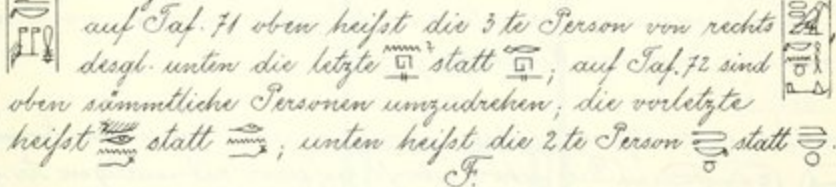 auf Taf. 71 oben heißt die 3te Person von rechts
desgl. unten die letzte statt ; auf Taf. 72 sind
oben sämmtliche Personen umzudrehen; die vorletzte
heißt statt ; unten heißt die 2te Person statt .
F.